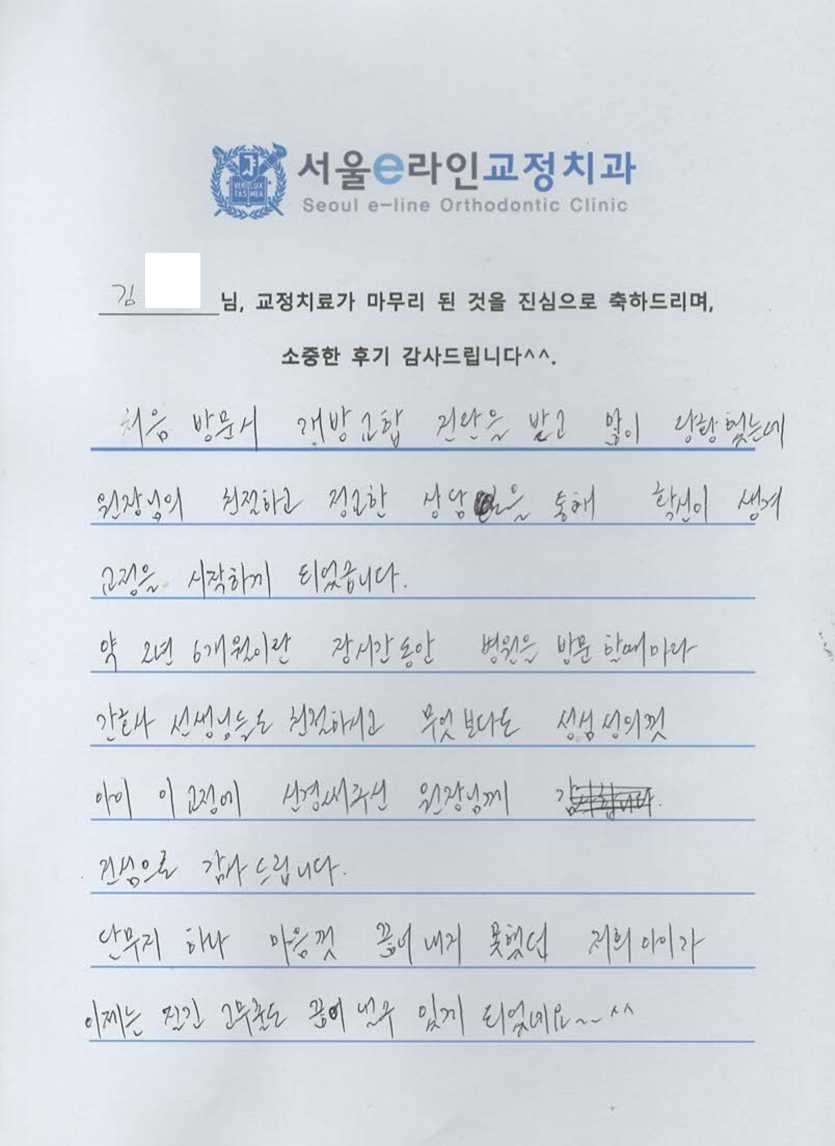 서울e라인교정치과
Seoul e-line Orthodontic Clinic
김 님, 교정치료가 마무리 된 것을 진심으로 축하드리며,
소중한 후기 감사드립니다^^.
처음 방문시 개방교합 진단을 받고 많이 당황했는데
원장님의 친절하고 정교한 상담을 통해 확신이 생겨
교정을 시작하게 되었습니다.
약 2년 6개월이란 장시간동안 병원을 방문 할때마다
간호사 선생님들도 친절하시고 무엇보다도 성심성의껏
아이 이 교정에 신경써주신 원장님께
진심으로 감사드립니다.
단무지 하나 마음껏 끊어 내지 못했던 저희 아이가
이제는 질긴 고무줄도 끊어 낼수 있게 되었네요~~^^